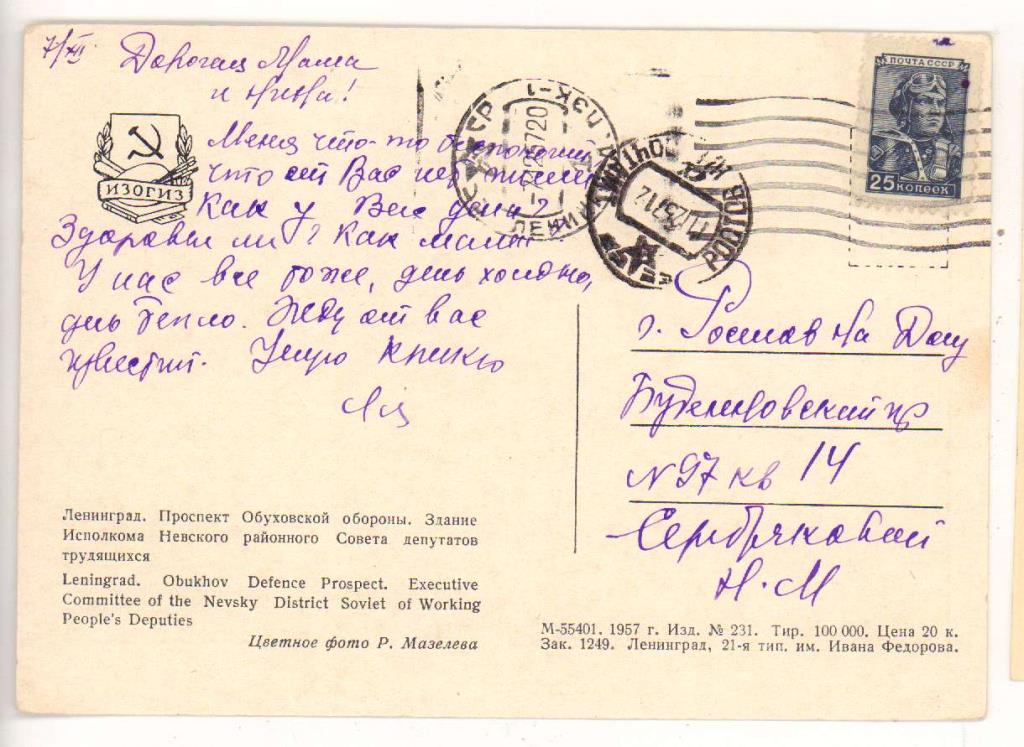 7/XII
Дорогая Мама
и Нина!
Меня что-то беспокоит,
что от Вас нет писем
Как у Вас дела?
Здоровы ли? Как мама?
У нас все тоже, день холодно,
день тепло. Жду от вас
известий. Целую крепко
ИЗОГИЗ
ПОЧТА СССР
25 КОПЕЕК
г. Ростов на Дону
Буденновский пр
N 97 кв 14
Серебряковой
Н. М
Ленинград. Проспект Обуховской обороны. Здание
Исполкома Невского районного Совета депутатов
трудящихся
Leningrad. Obukhov Defence Prospect. Executive
Committee of the Nevsky District Soviet of Working
People's Deputies
Цветное фото Р. Мазелева
М-55401. 1957 г. Изд. № 231. Тир. 100 000. Цена 20 к.
Зак. 1249. Ленинград, 21-я тип. им. Ивана Федорова.